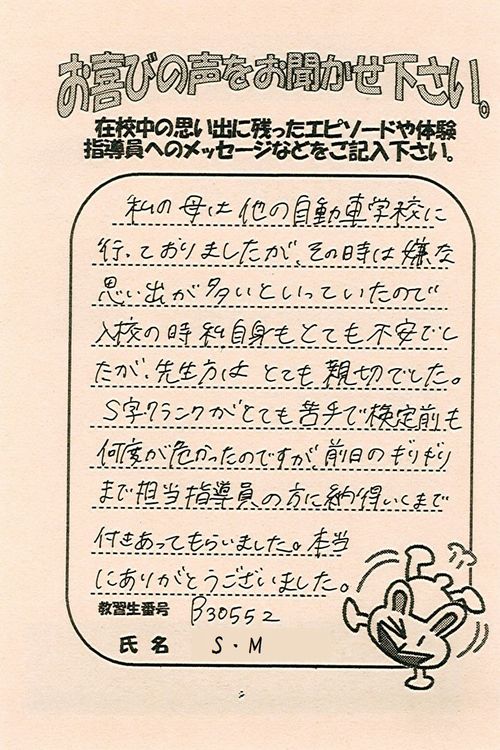 お喜びの声をお聞かせ下さい。
在校中の思い出に残ったエピソードや体験
指導員へのメッセージなどをご記入下さい。
私の母は他の自動車学校に
行っておりましたが、その時は嫌な
思い出が多いといっていたので
入校の時私自身もとても不安でし
たが、先生方はとても親切でした。
S字クランクがとても苦手で検定前も
何度が危かったのですが、前日のギリギリ
まで担当指導員の方に納得いくまで
付きあってもらいました。本当
にありがとうございました。
教習生番号 B30552
氏名 S・M